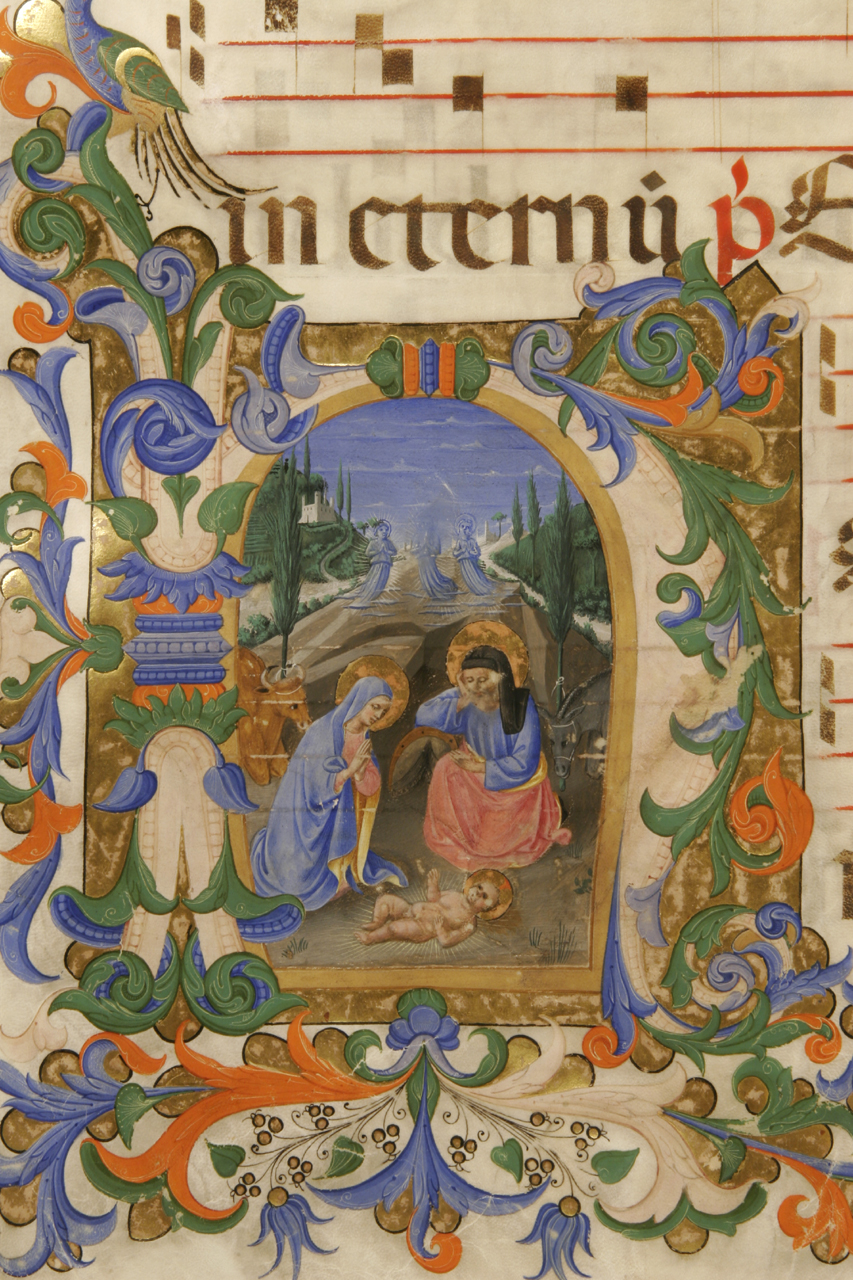 in eternū p̓